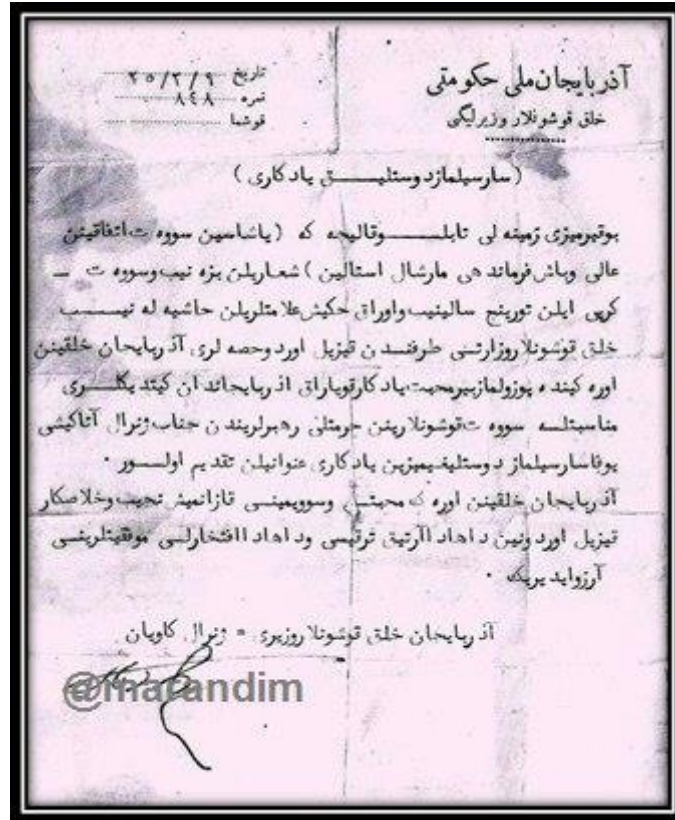 آذربایجان ملی حکومتی
خلق قوشونلار وزیرلیگی
تاریخ ۲۵/۲/۹
نمره ۸۴۸
قوشما
(سارسیلماز دوستلیق یادکاری)
بوقیرمیزی زمینه لی تابلو قالیچه که (یاشاسین سووه ت اتفاقینن
عالی وباش فرمانده هی مارشال استالین) شعاریلن بزه نیب وسووه ت
کربی ایلن تورینج سالینیب واوراق حکیش علامتلریلن حاشیه له نیب
خلق قوشونلار وزارتنی طرفندن قیزیل اورد وحصه لری آذربایجان خلقینن
اوره کینده پوزولماز بیر محبت یادکار قویاراق اذربایجاندان کیتدیکلری
مناسبتله سووه ت قوشونلارینن حرمتلی رهبرلریندن جناب ژنرال آتاکیشی
یوفا سارسیلماز دوستلیغیمیزین یادکاری عنوانیلن تقدیم اولسور .
آذربایجان خلقینن اوره ک محبتی وسوویمینی قازانمیش نجیب وخلاصکار
قیزیل اوردونین داهاد اآرتیق ترقیمی وداهاد اافتخارلی موفقیتلرینی
آرزوایدیریک .
آذربایجان خلق قوشونلار وزیری = ژنرال کاویان
@marandim